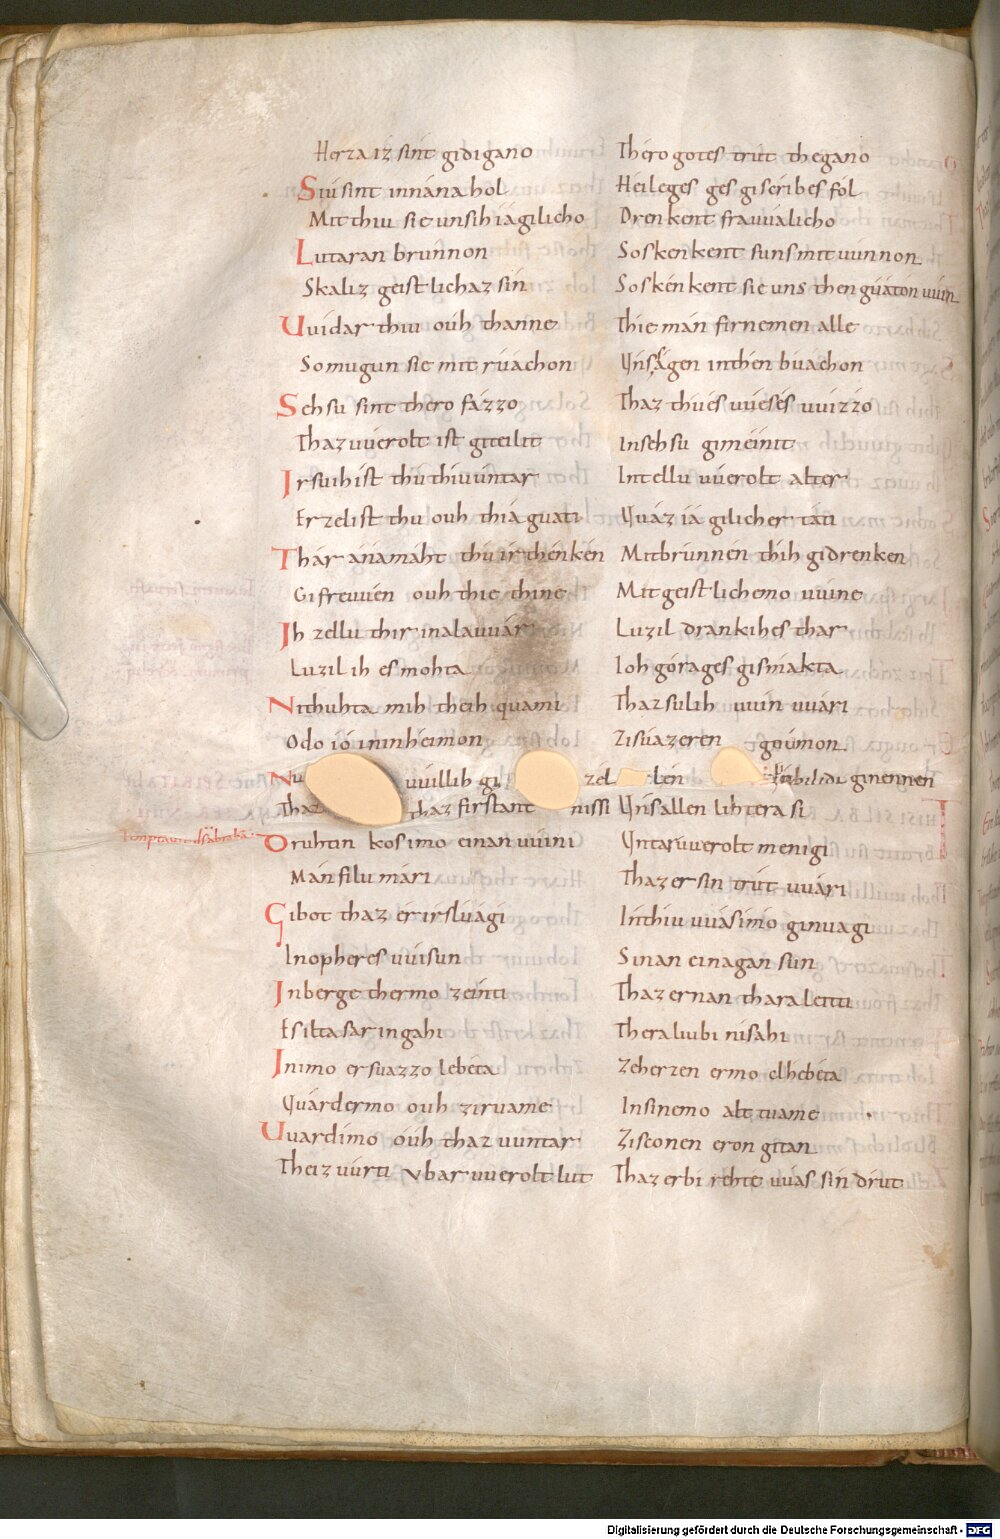 Herza iz sint gidigano Thero gotes trut thegano
Siu sint innana hol Heileges gescribes fol
Mit thiu sie unsih iagilicho Drenkent frauualicho
Lutaran brunnon So skenkent sunsmit uuinnon
Skaliz geistlichaz sin So skenkent sie uns then guaton uuin
Uuidar thiu ouh thanne Thie man firnemen alle
So mugun sie mit ruachon Uns sagen in then buachon
Sehsu sint thero fazzo Thaz thu es uueses uuizzo
Thaz uuerolt ist giteilit In sehsu gimeinit
Irsuih ist thu thiu untar In tellu uuerolt altor
Er zelist thu ouh thia guati Uuaz iagilicher tati
Thar ana maht thu irthenken Mit brunnen thih gidrenken
Gifreuuen ouh thie thine Mit geistlichemo uuine
Ih zellu thir in alauuar Luzil drank ih es thar
Luzil ih es mohta Ioh gorages gismakta
Nithuhta mih theih quami Thaz sulih uuin uuari
Odo io in inheimon Zi suazeren goumon
Nu uuillih gi zel len bilidi ginennen
Thaz thaz firstant nissi Uns allen lihtera si
Temptauit ds abraha
Druhtin kos imo einan uuini Untar uuerolt menigi
Man filu mari Thaz er sin trut uuari
Gibot thaz er irsluagi Inthiu uuas imo ginuagi
In opheres uuisun Sinan einagan sun
In berge thermo zeinti Thaz er nan thara leitti
Es ilta sar in gahi Thera liubi ni sahi
In imo er suazzo lebeta Zeherzen ermo clhebeta
Uuard ermo ouh ziruame In sinemo alttuame
Uuard imo ouh thaz uuntar Zi sconen eron gitan
Theiz uurti ubar uuerolt lut Thaz er bi rehte uuas sin drut
Digitalisierung gefördert durch die Deutsche Forschungsgemeinschaft - DFG